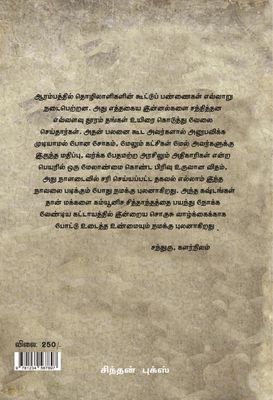 ஆரம்பத்தில் தொழிலாளிகளின் கூட்டுப் பண்ணைகள் எவ்வாறு
நடைபெற்றன. அது எத்தகைய இன்னல்களை சந்தித்தன
எவ்வளவு தூரம் தங்கள் உயிரை கொடுத்து வேலை
செய்தார்கள். அதன் பலனை கூட அவர்களால் அனுபவிக்க
முடியாமல் போன சோகம், மேலும் கட்சிகள் மேல் அவர்களுக்கு
இருந்த மதிப்பு, வர்க்க பேதமற்ற அரசிலும் அதிகாரிகள் என்ற
பெயரில் ஒரு மேலாண்மை கொண்ட பிரிவு உருவான விதம்,
அது நாளடைவில் சரி செய்யப்பட்ட தகவல் எல்லாம் இந்த
நாவலை படிக்கும் போது நமக்கு புலனாகிறது. அந்த கஷ்டங்கள்
தான் மக்களை கம்யூனிச சித்தாந்தத்தை பயந்து நோக்க
வேண்டிய கட்டாயத்தில் இன்றைய சொகுசு வாழ்க்கைக்காக
போட்டு உடைத்த உண்மையும் நமக்கு புலனாகிறது
சந்துரு, களர்நிலம்
விலை: 250/-
9 781234 567897
சிந்தன் புக்ஸ்